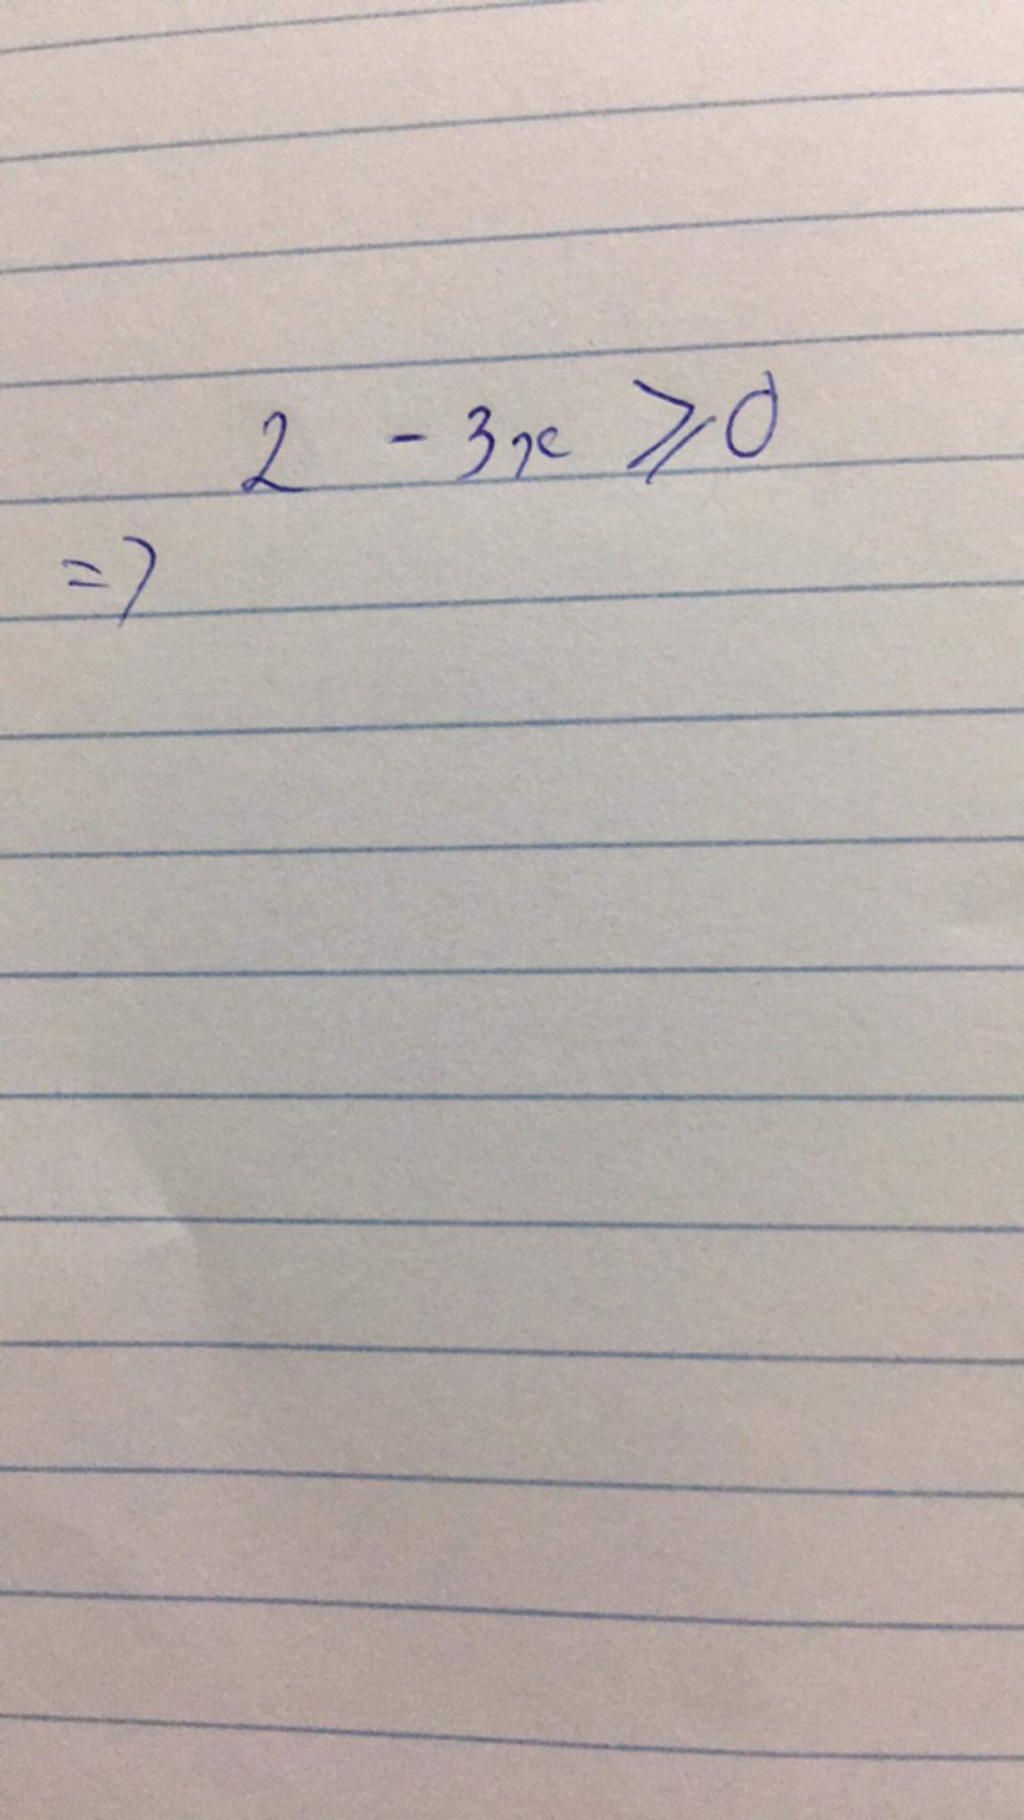 2 - 3x ⩾ 0
=>